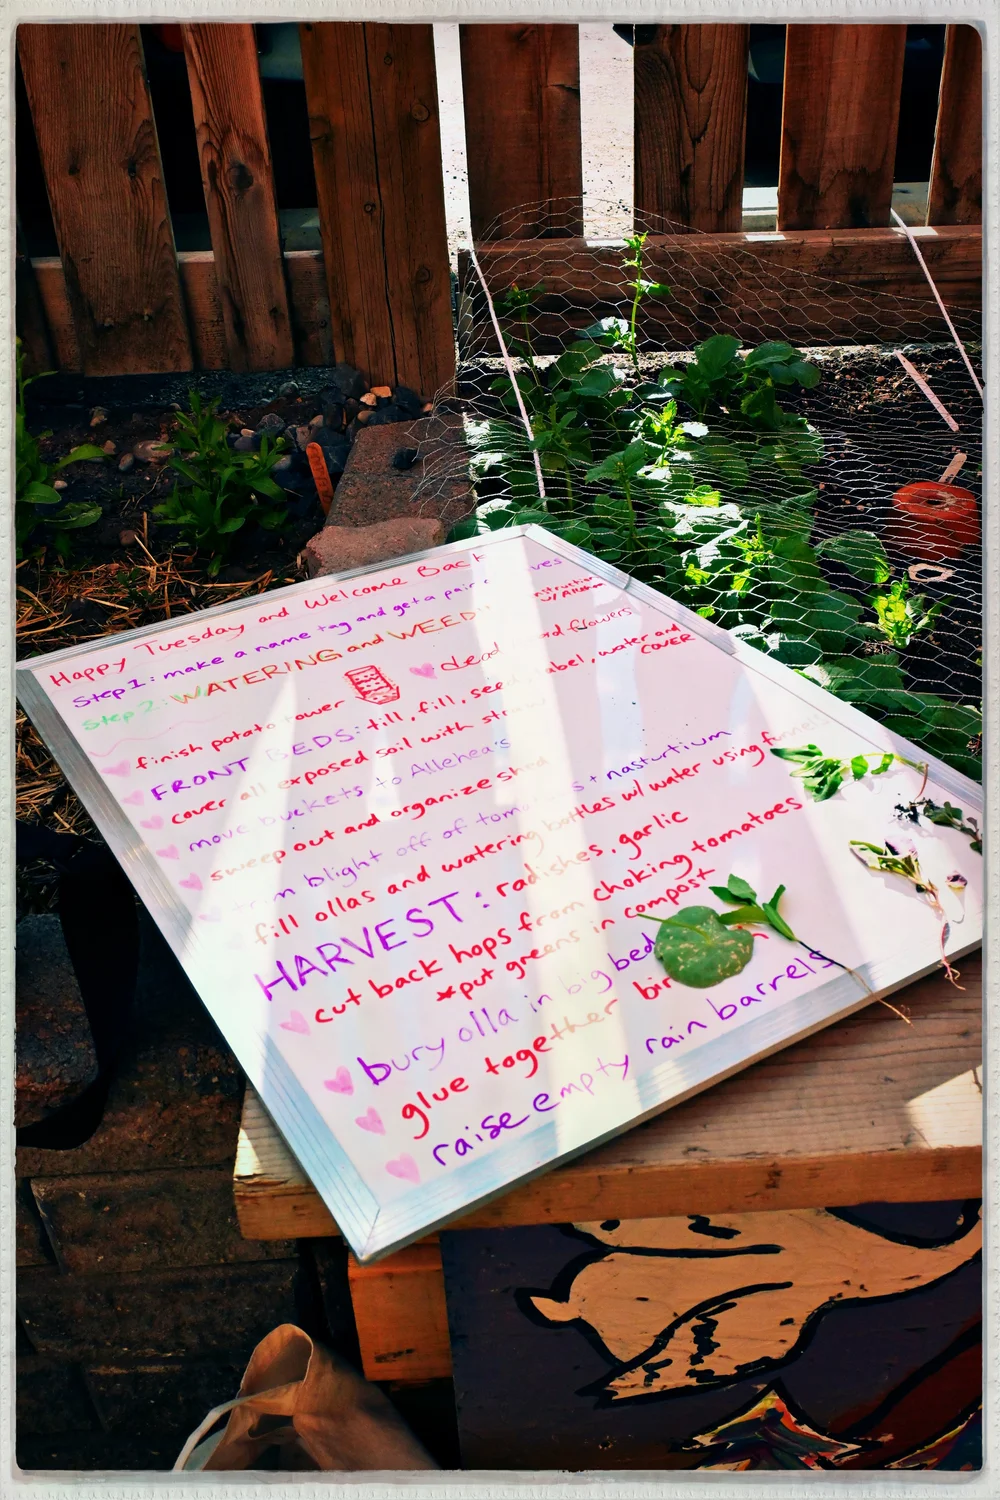 Happy Tuesday and Welcome Back
Step 1: make a name tag and get a pair
Step 2: WATERING and WEED
finish potato tower
dead flowers
FRONT BEDS: till, fill, seed, label, water and COVER
cover all exposed soil with straw
move buckets to Allehea's
sweep out and organize shed
trim blight off of tomatoes + nasturtium
fill ollas and watering bottles w/ water using funnels
HARVEST: radishes, garlic
cut back hops from choking tomatoes
*put greens in compost
bury olla in big bed
glue together
raise empty rain barrels